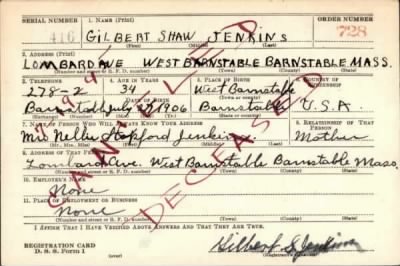 SERIAL NUMBER 1. NAME (Print) ORDER NUMBER
416 GILBERT SHAW JENKINS 728
(First) (Middle) (Last)
2. ADDRESS (Print)
LOMBARD AVE WEST BARNSTABLE BARNSTABLE MASS.
(Number and street or R. F. D. number) (Town) (County) (State)
3. TELEPHONE 4. AGE IN YEARS 5. PLACE OF BIRTH 6. COUNTRY OF CITIZENSHIP
278-2 34 West Barnstable
DATE OF BIRTH
Barnstable July 1906 Barnstable U.S.A.
(Exchange) (Number) (Mo.) (Day) (Yr.) (Town) (County)
7. NAME OF PERSON WHO WILL ALWAYS KNOW YOUR ADDRESS 8. RELATIONSHIP OF THAT PERSON
Nellie Stopford Jenkins Mother
(First) (Middle) (Last)
9. ADDRESS OF THAT PERSON
Lombard Ave. West Barnstable Barnstable Mass.
(Number and street or R. F. D. number) (Town) (County) (State)
10. EMPLOYER'S NAME
None
11. PLACE OF EMPLOYMENT OR BUSINESS
None
(Number and street or R. F. D. number) (Town) (County) (State)
I AFFIRM THAT I HAVE VERIFIED ABOVE ANSWERS AND THAT THEY ARE TRUE.
REGISTRATION CARD
D. S. S. Form 1
Gilbert S. Jenkins
(Registrant's signature)
CANCELLED
DECEASED